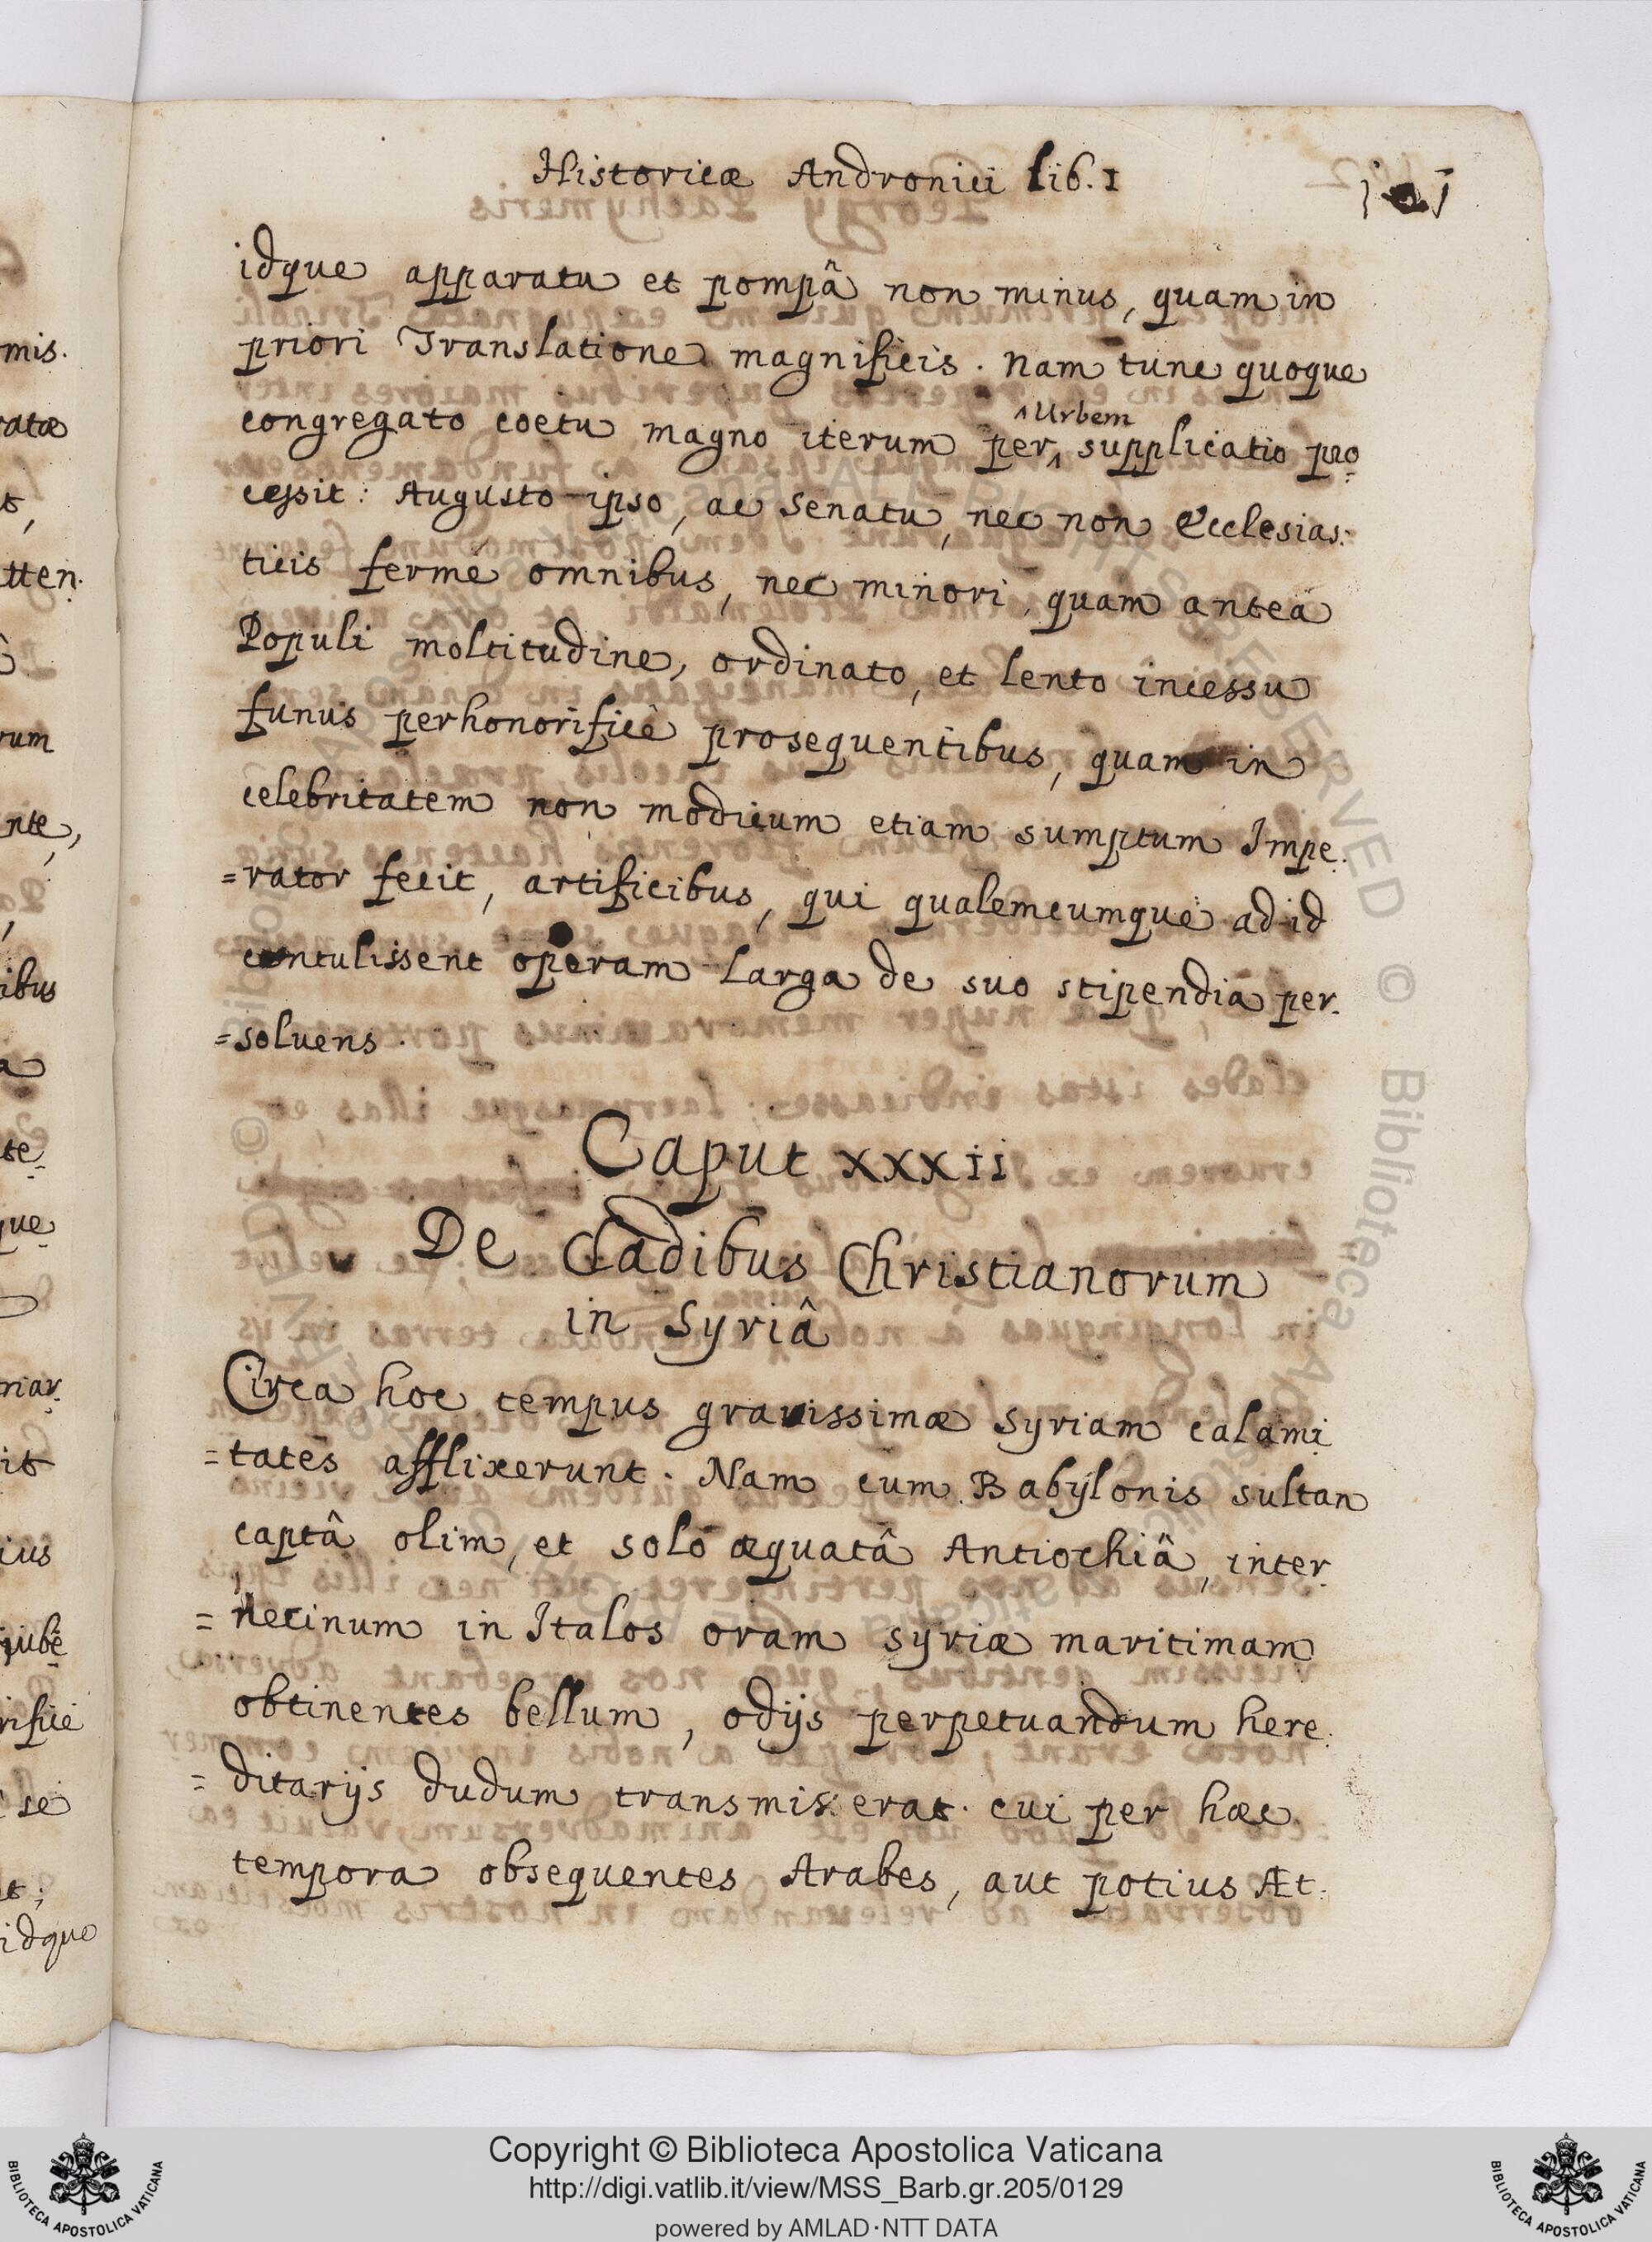 Historicæ Andronici lib. 1
idque apparatu et pompâ non minus, quam in
priori Translatione magnificis. nam tunc quoque
congregato coetu magno iterum per ^Urbem supplicatio pro
cessit: Augusto ipso, ac senatu, nec non Ecclesias:
ticis fermè omnibus, nec minori, quam anteà
Populi moltitudine, ordinato, et lento incessu
funus perhonorificè prosequentibus, quam in
celebritatem non modicum etiam sumptum Impe.
=rator fecit, artificibus, qui qualemcumque ad id
contulissent operam larga de suo stipendia per.
=soluens.
Caput XXXII
De Cladibus Christianorum
in Syriâ
Circa hoc tempus gravissimæ Syriam calami
=tates afflixerunt. Nam cum Babylonis sultan
captâ olim, et solo æquatâ Antiochiâ, inter.
=necinum in Italos oram syriæ maritimam
obtinentes bellum, odijs perpetuandum here.
=ditarijs dudum transmiserat. cui per hæc
tempora obsequentes Arabes, aut potius Æt.
mis.
atæ
tten.
rum
nte,
ibus
te
que
riar.
it
ius
jubē
rificè
se
idque
Copyright © Biblioteca Apostolica Vaticana
http://digi.vatlib.it/view/MSS_Barb.gr.205/0129
powered by AMLAD·NTT DATA
BIBLIOTECA APOSTOLICA VATICANA
BIBLIOTECA APOSTOLICA VATICANA